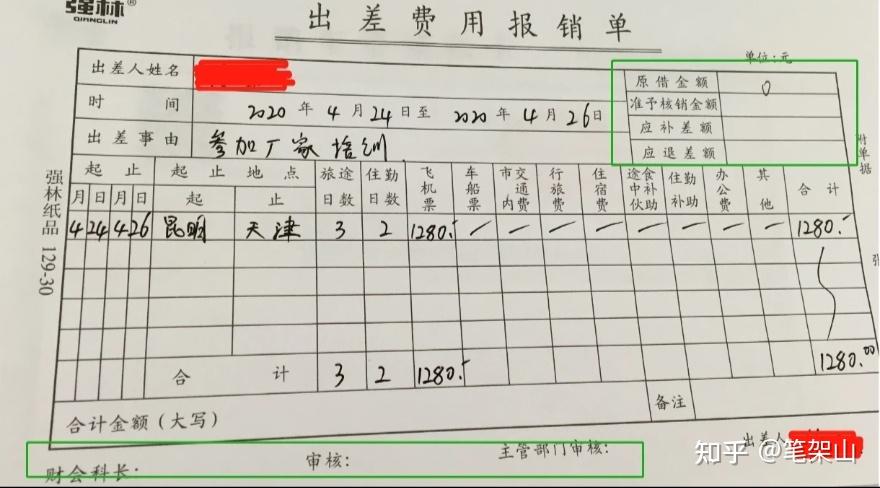 强林®
QIANGLIN
出差费用报销单
单位:元
出差人姓名
原借金额 0
时 间 2020 年 4 月 24 日至 2020 年 4 月 26 日
准予核销金额
出差事由 参加厂家培训
应补差额
应退差额
附单据
张
强林纸品 129-30
起 止 起 止 地 点 旅途日数 住勤日数 飞机票 车船票 市内交通费 行旅费 住宿费 途中伙食补助 住勤补助 办公费 其他 合 计
月 日 月 日 起 止
4 24 4 26 昆明 天津 3 2 1280.- — — — — — — — — 1280.-
合 计 3 2 1280.- 1280.00
合计金额(大写) 备注
财会科长: 审核: 主管部门审核: 出差人
知乎 @笔架山